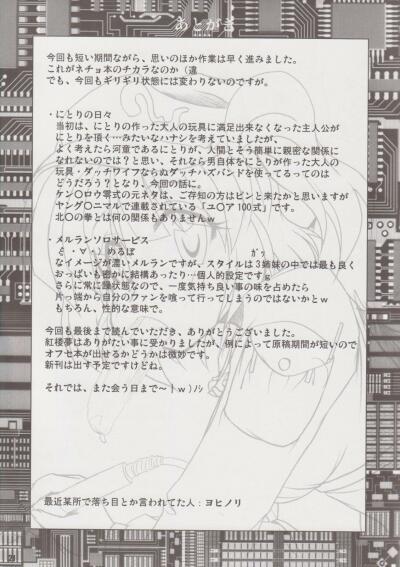 あとがき
今回も短い期間ながら、思いのほか作業は早く進みました。
これがネチョ本のチカラなのか（違
でも、今回もギリギリ状態には変わりないのですが。
・にとりの日々
当初は、にとりの作った大人の玩具に満足出来なくなった主人公が
にとりを頂く…みたいなハナシを考えていましたが、
よく考えたら河童であるにとりが、人間とそう簡単に親密な関係に
なれないのでは？と思い、それなら男自体をにとりが作った大人の
玩具・ダッチワイフならぬダッチハズバンドを使ってるってのは
どうだろう？となり、今回の話に。
ケン〇ロウ零式の元ネタは、ご存知の方はピンと来たかと思いますが
ヤング〇ニマルで連載されている「ユ〇ア100式」です。
北〇の拳とは何の関係もありませんｗ
・メルランソロサービス
ξ・∀・）めるぽ ｶﾞｯ
なイメージが濃いメルランですが、スタイルは３姉妹の中では最も良く
おっぱいも密かに結構あったり…個人的設定ですｇ
さらに常に躁状態なので、一度気持ち良い事の味を占めたら
片っ端から自分のファンを喰って行ってしまうのではないかとｗ
もちろん、性的な意味で。
今回も最後まで読んでいただき、ありがとうございました。
紅楼夢はありがたい事に受かりましたが、例によって原稿期間が短いので
オフセ本が出せるかどうかは微妙です。
新刊は出す予定ですけどね。
それでは、また会う日まで～|ｗ)ﾉｼ
最近某所で落ち目とか言われてた人：ヨヒノリ